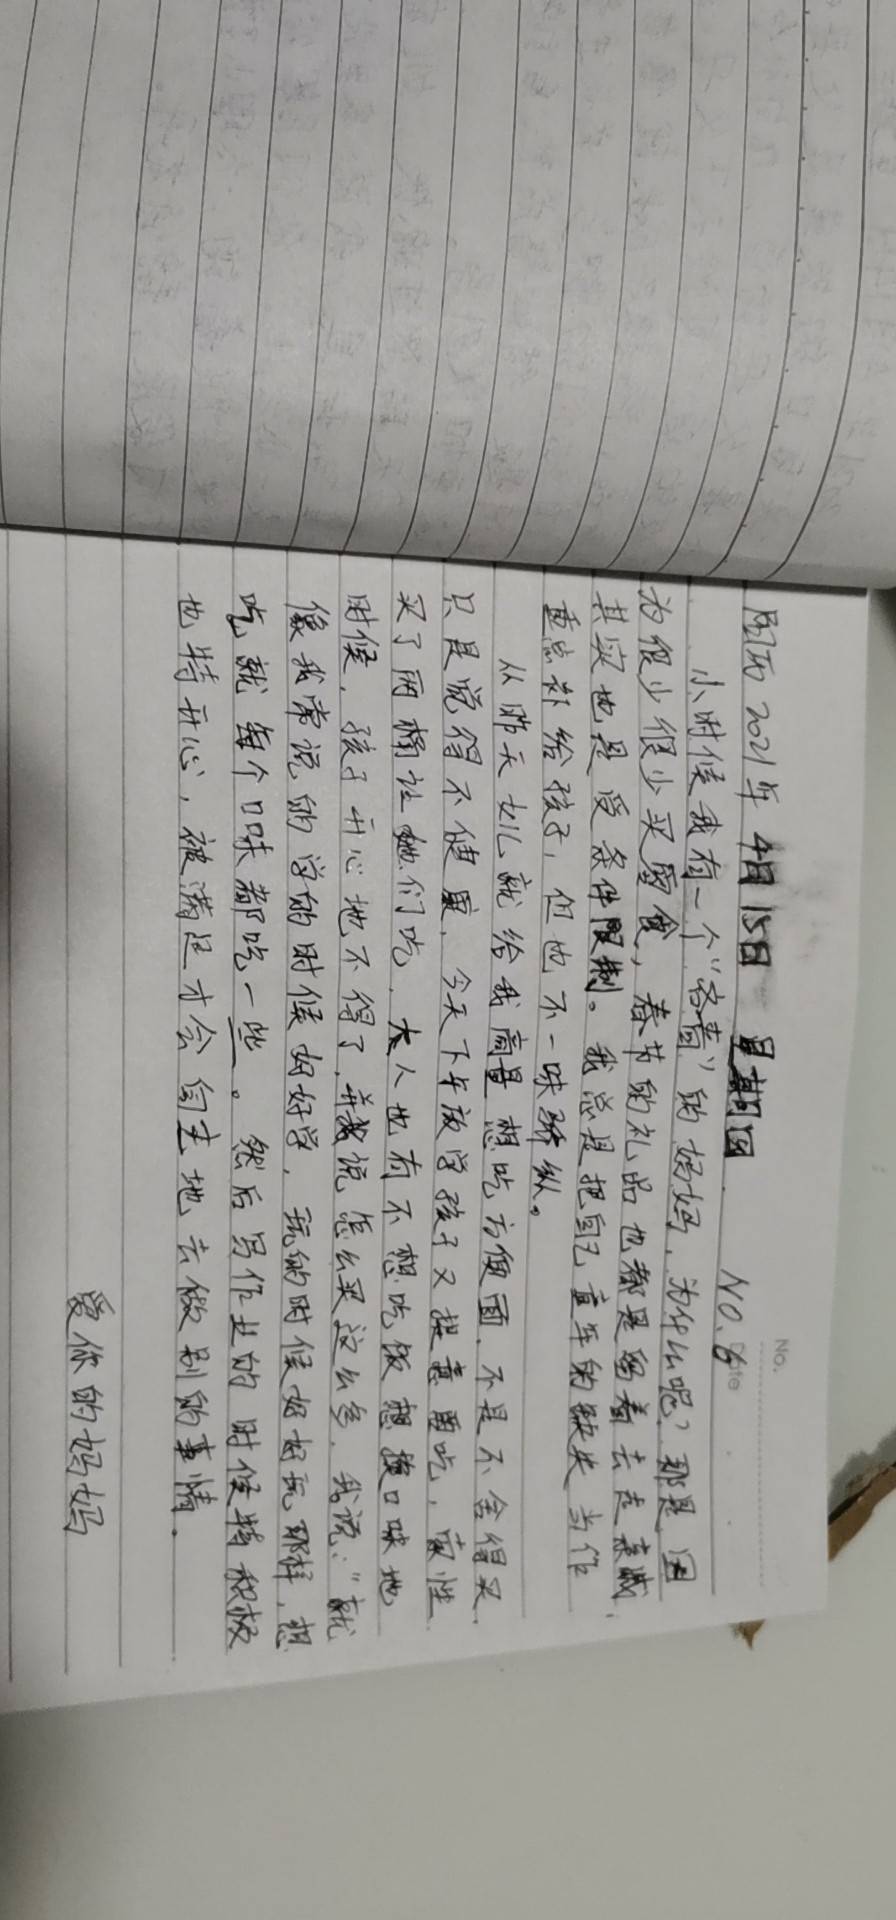 2021年 4月15日 星期四 NO.6
No.
Date
小时候我有一个“吝啬”的妈妈，为什么呢？那是因
为很少很少买零食，春节的礼品也都是留着去走亲戚，
其实也是受条件限制。我总是把自己童年的缺失当作
重点补给孩子，但也不一味骄纵。
从昨天女儿就给我商量想吃方便面，不是不舍得买，
只是觉得不健康，今天下午放学孩子又提意要吃，索性
买了两桶让她们吃，大人也有不想吃饭想换口味地
时候，孩子开心地不得了，并说怎么买这么多，我说：“就
像我常说的学的时候好好学，玩的时候好好玩那样，想
吃就每个口味都吃一些。然后写作业的时候特积极
也特开心，被满足才会自主地去做别的事情．
爱你的妈妈